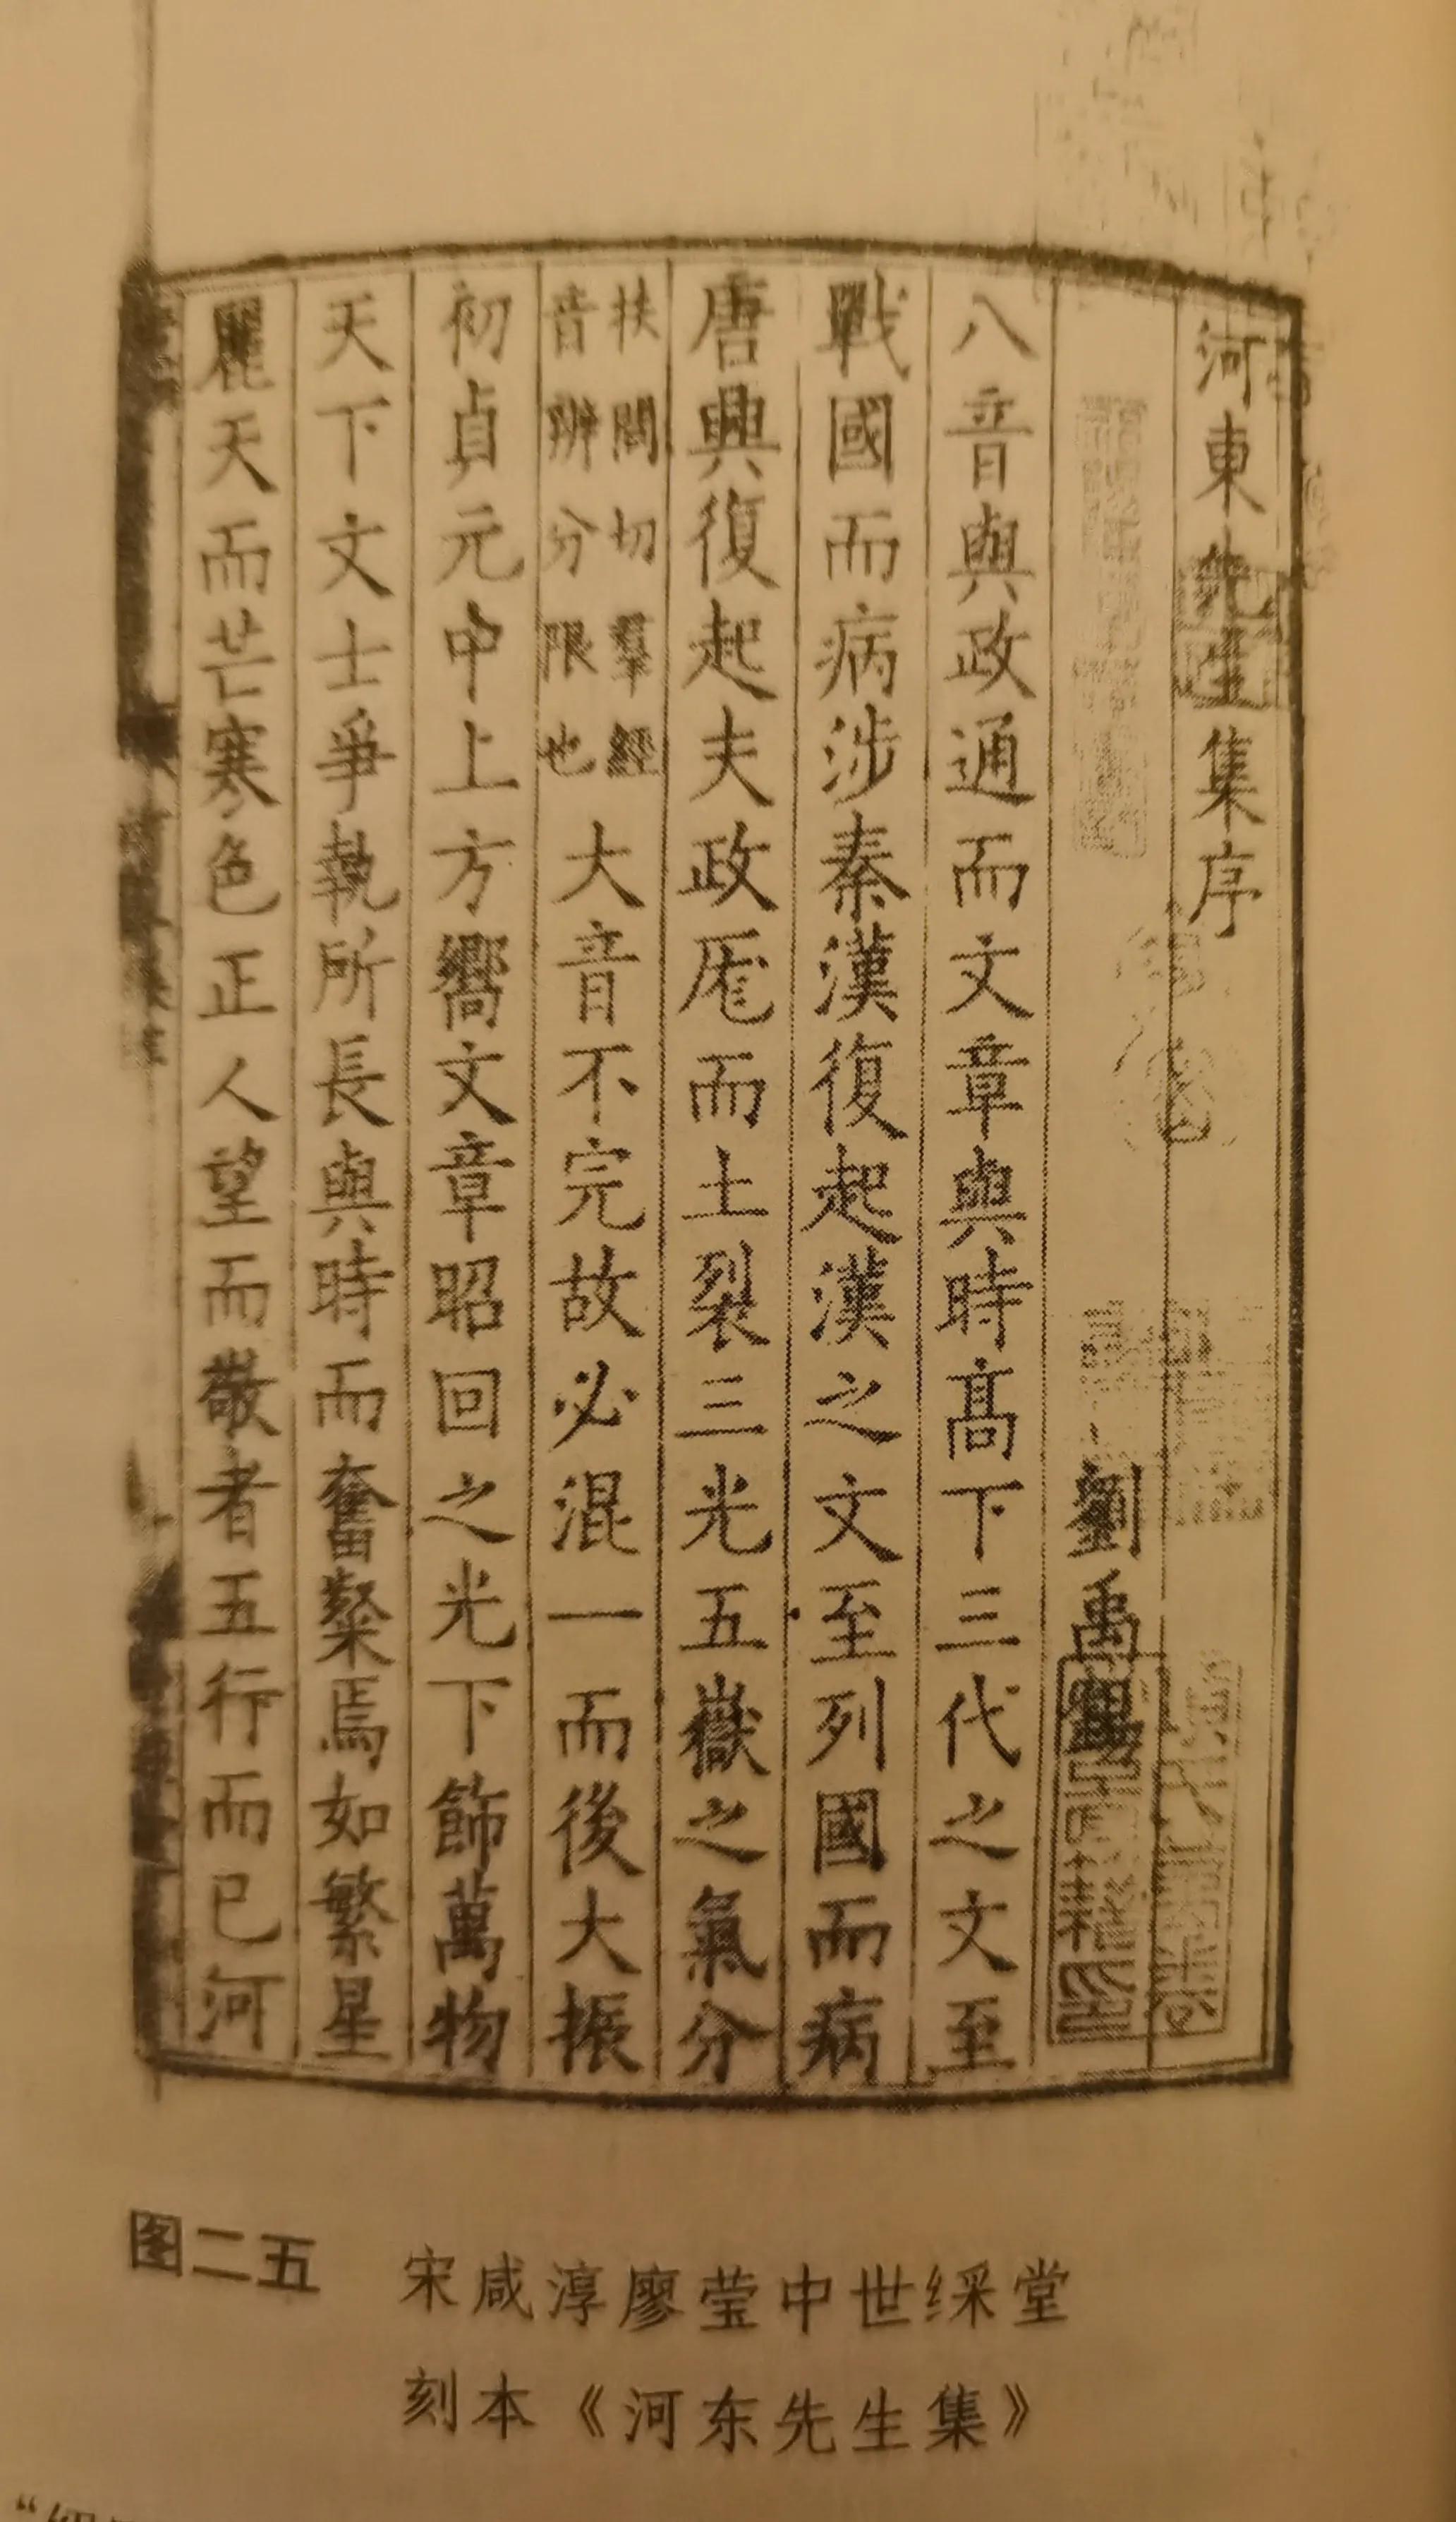 河東先生集序
劉禹錫
八音與政通而文章與時髙下三代之文至
戰國而病涉秦漢復起漢之文至列國而病
唐興復起夫政厖而土裂三光五嶽之氣分
扶問切羣經
音辨分限也
大音不完故必混一而後大振
初貞元中上方嚮文章昭回之光下飾萬物
天下文士爭執所長與時而奮粲焉如繁星
麗天而芒寒色正人望而敬者五行而已河
图二五 宋咸淳廖莹中世綵堂
刻本《河东先生集》